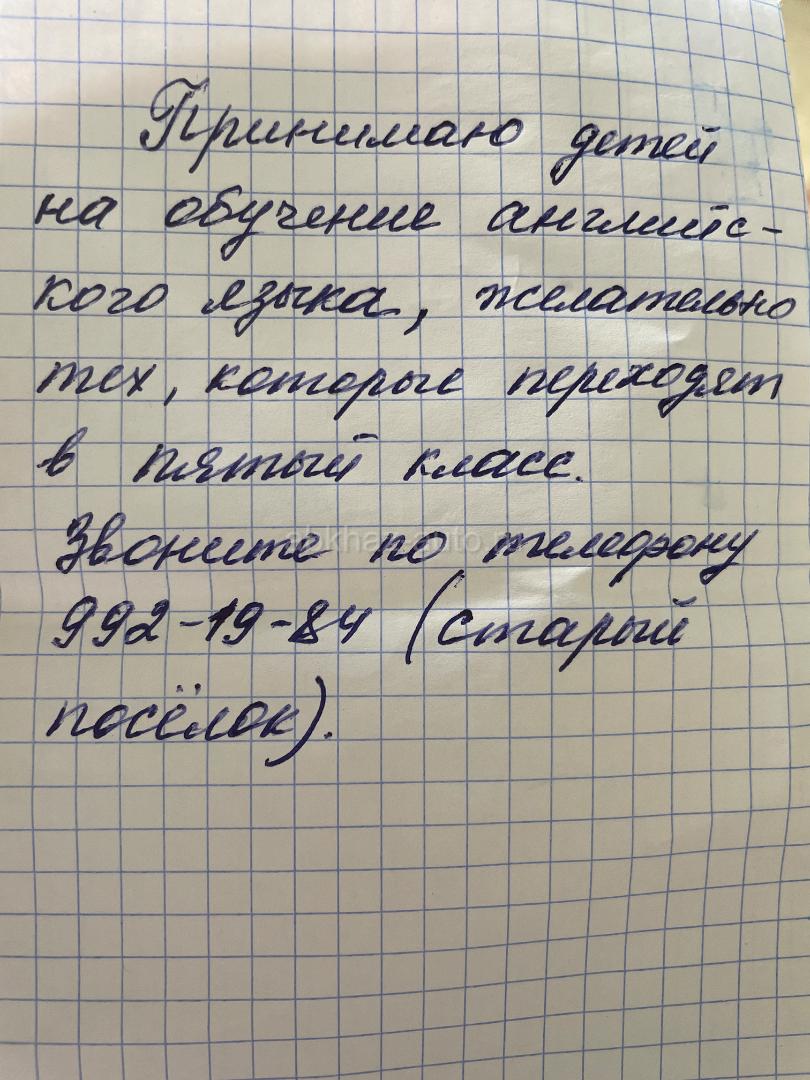 Принимаю детей
на обучение английс-
кого языка, желательно
тех, которые переходят
в пятый класс.
Звоните по телефону
992-19-84 (старый
посёлок).